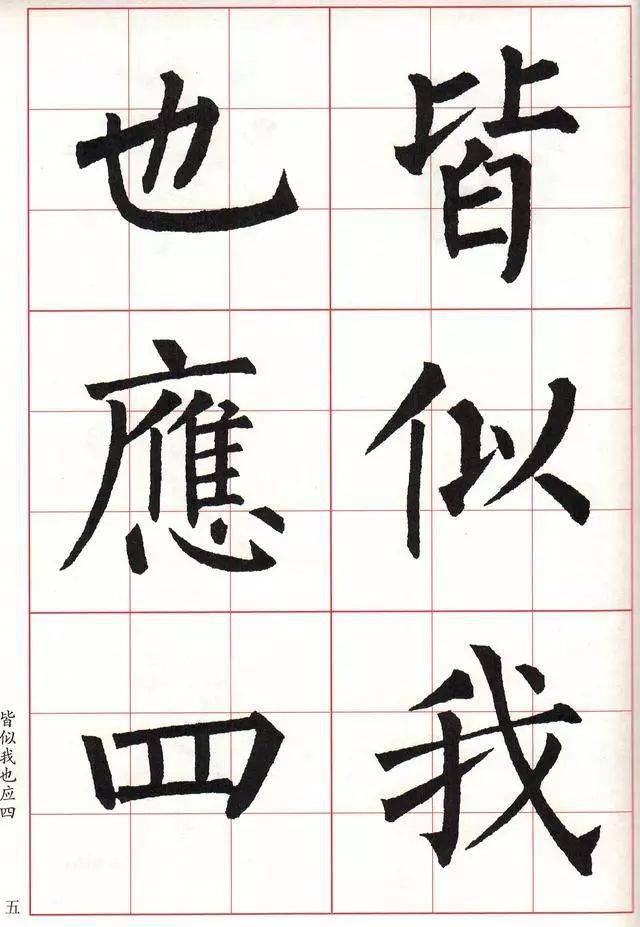 皆似我
也應四
皆似我也应四
五